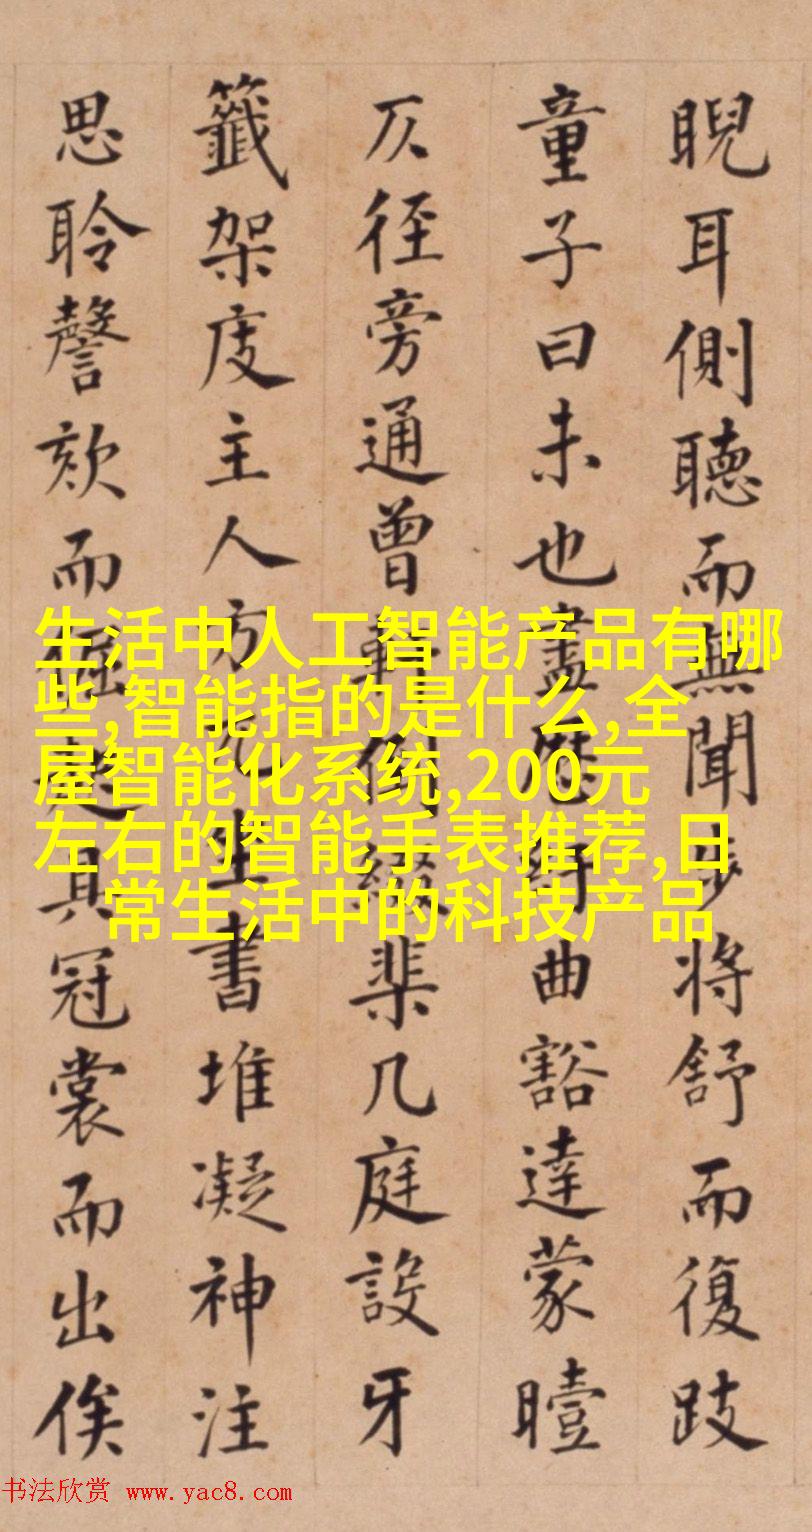 睨耳側聽而無聞步將舒而復跂
童子曰未也盡歷紆曲豁達蒙曀
仄徑旁通曾軒綴棐几庭設牙
籤架庋主人方兀坐書堆凝神注
思聆謦欬而起具冠裳而出俟
生活中人工智能产品有哪
些,智能指的是什么,全
屋智能化系统,200元
左右的智能手表推荐,日
常生活中的科技产品
书法欣赏 www.yac8.com